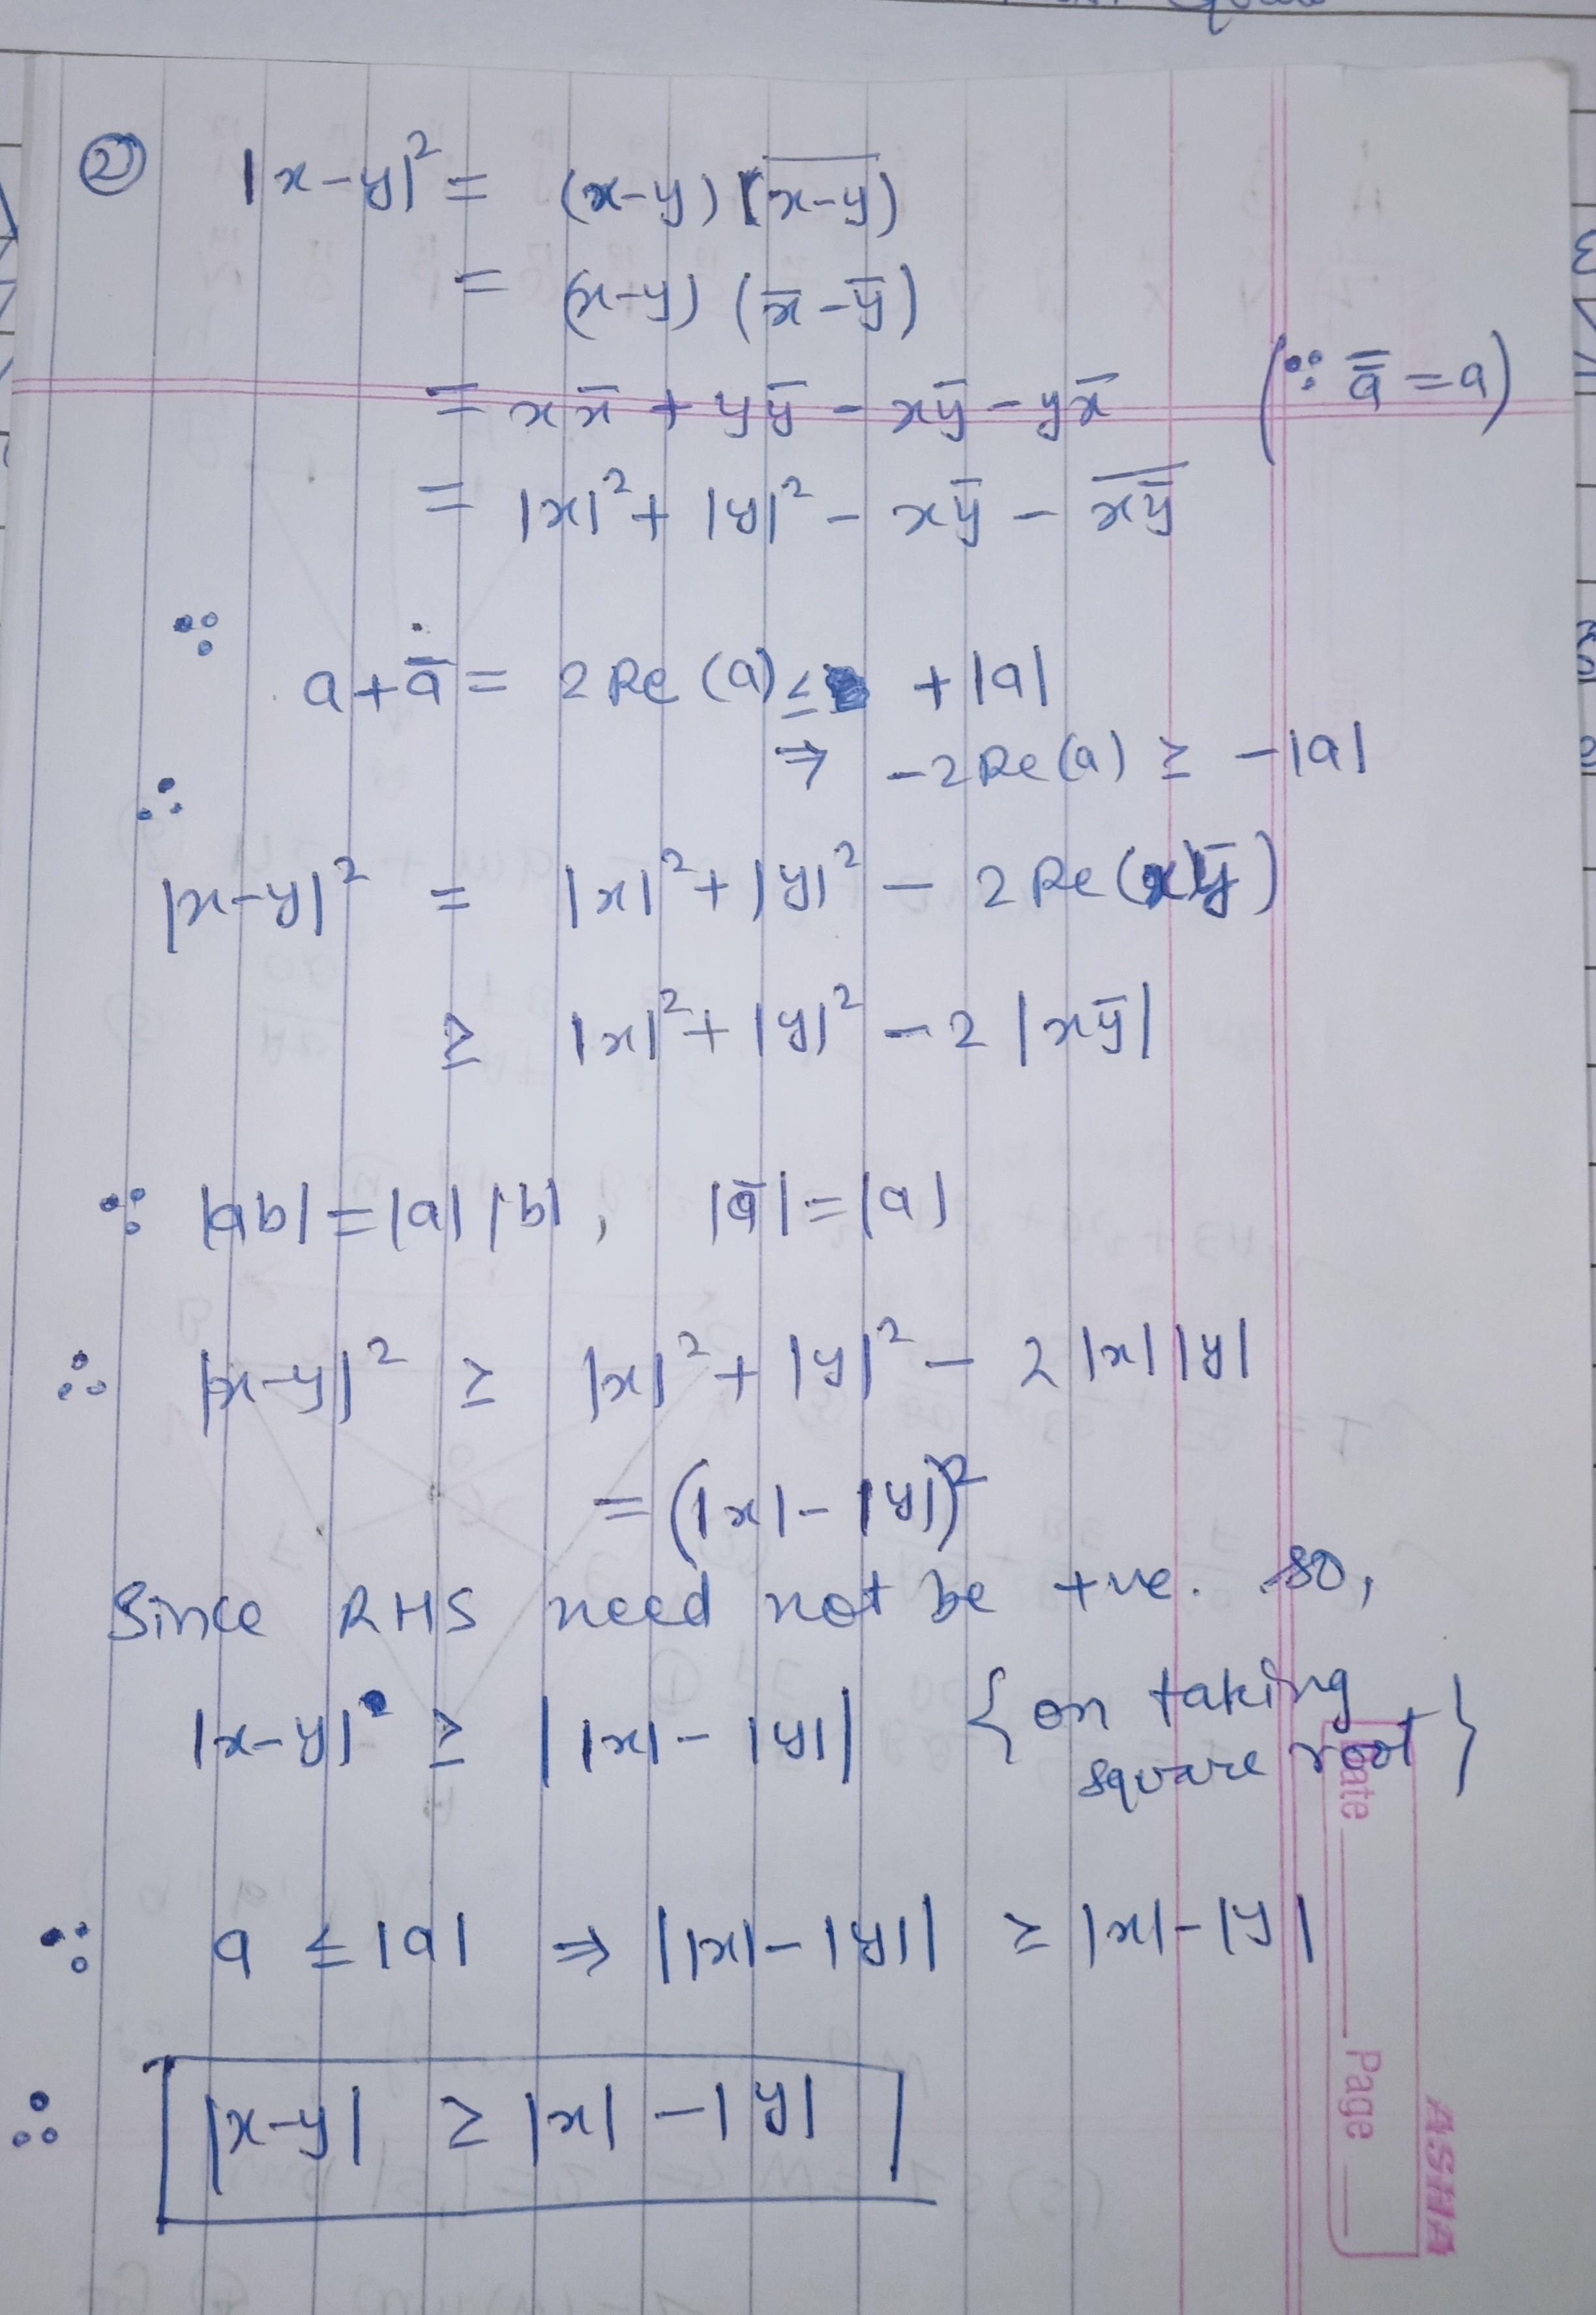 ② |x-y|² = (x-y)(\overline{x-y})
= (x-y)(x̄-ȳ)
= xx̄ + yȳ - xȳ - yx̄ (∵ \bar{\bar{a}} = a)
= |x|² + |y|² - xȳ - \overline{xȳ}
∵
a + ā = 2 Re (a) ≤ + |a|
⇒ -2 Re (a) ≥ -|a|
∴
|x-y|² = |x|² + |y|² - 2 Re (xȳ)
≥ |x|² + |y|² - 2 |xȳ|
∵ |ab| = |a| |b|, |ā| = |a|
∴ |x-y|² ≥ |x|² + |y|² - 2 |x| |y|
= (|x| - |y|)²
Since RHS need not be +ve. so,
|x-y| ≥ ||x| - |y|| {on taking
square root}
∵ a ≤ |a| ⇒ ||x| - |y|| ≥ |x| - |y|
∴ |x-y| ≥ |x| - |y|
Date
Page
ASHA